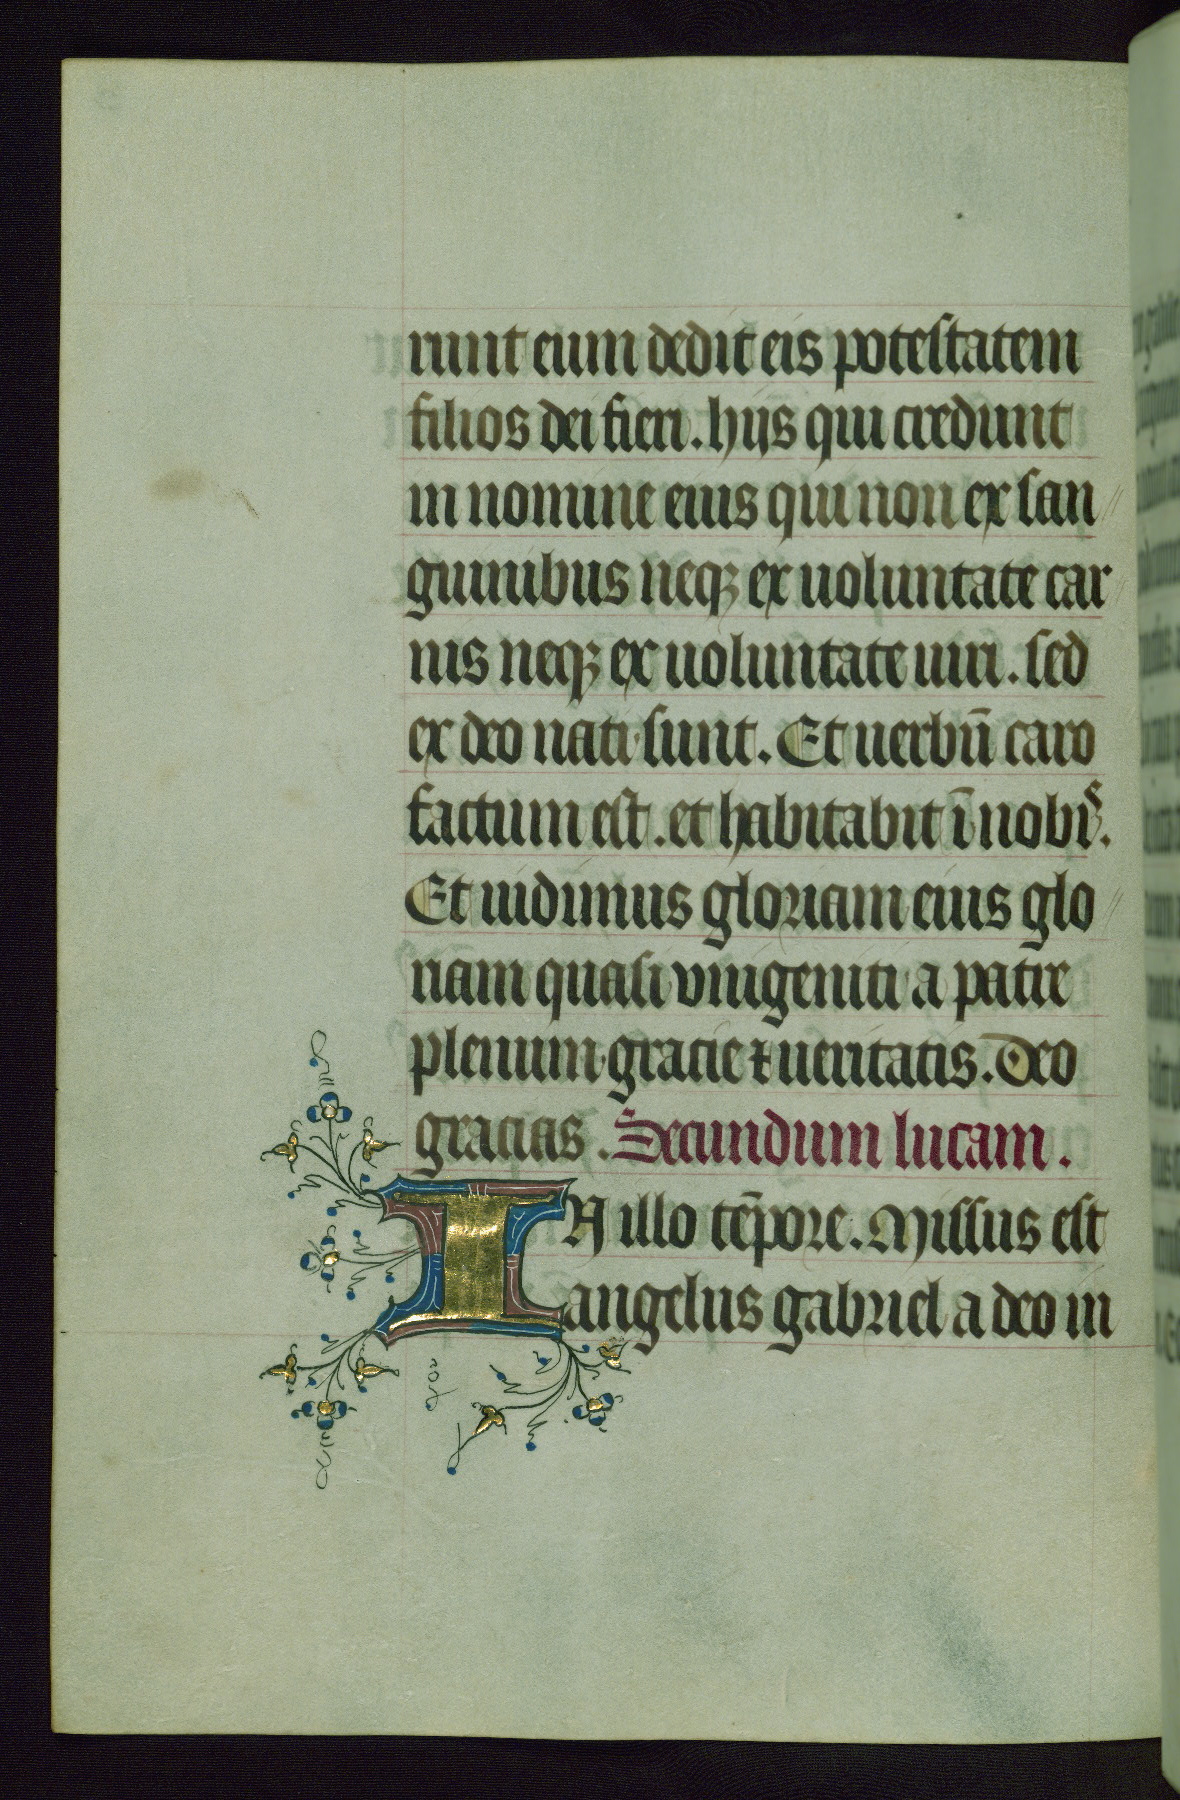 runt eum dedit eis potestatem
filios dei fieri. hijs qui credunt
in nomine eius qui non ex san
guinibus neqꝫ ex uoluntate car
nis neqꝫ ex uoluntate uiri. sed
ex deo nati sunt. Et uerbū caro
factum est. et habitabit ī nobis.
Et uidimus gloriam eius glo
riam quasi vnigeniti a patre
plenum gracie ⁊ ueritatis. Deo
gracias. Secundum lucam.
IN illo tēpore. Missus est
angelus gabriel a deo in